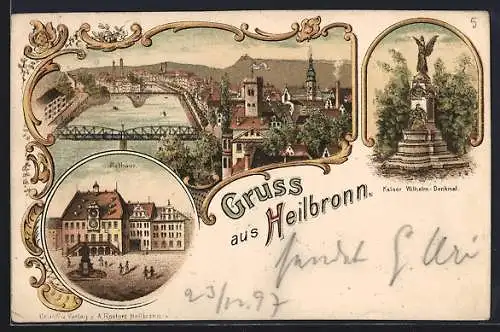 5
Rathaus.
Kaiser Wilhelm-Denkmal.
Gruss
aus Heilbronn.
sendet G.
23/12. 97
Druck u. Verlag v. A. Rostert Heilbronn.